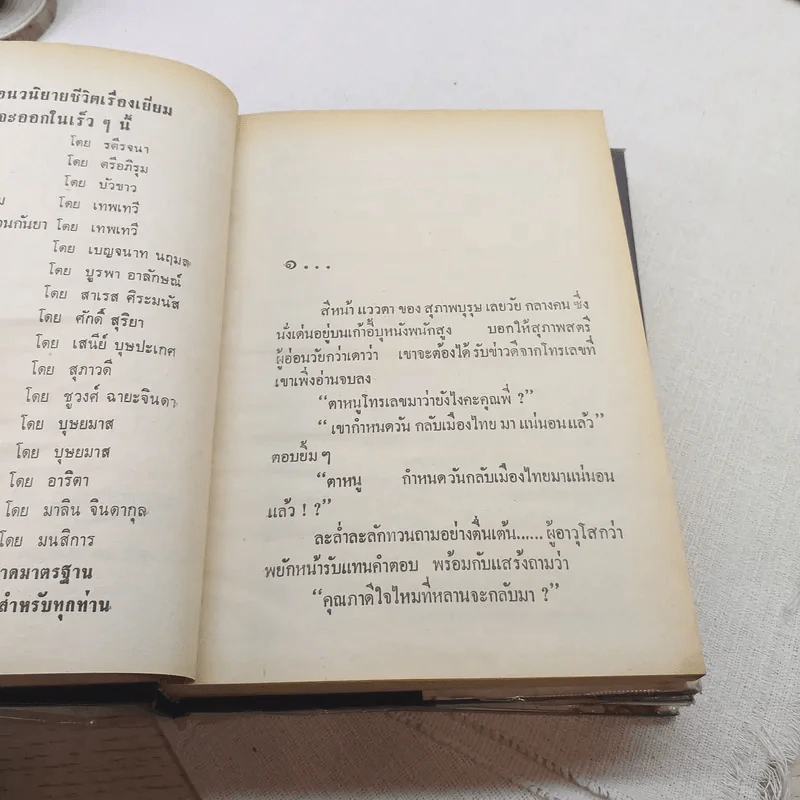 อนวนิยายชีวิตเรื่องเยี่ยม
จะออกในเร็ว ๆ นี้
โดย รตีรจนา
โดย ตรีอภิรุม
โดย บัวขาว
โดย เทพเทวี
อนกันยา โดย เทพเทวี
โดย เบญจนาท นฤมล
โดย บูรพา อาลักษณ์
โดย สาเรส ศิระมนัส
โดย ศักดิ์ สุริยา
โดย เสนีย์ บุษปะเกศ
โดย สุภาวดี
โดย ชูวงศ์ ฉายะจินดา
โดย บุษยมาส
โดย บุษยมาส
โดย อาริตา
โดย มาลิน จินดากุล
โดย มนสิการ
าดมาตรฐาน
สำหรับทุกท่าน
๑ . . .
สีหน้า แววตา ของ สุภาพบุรุษ เลยวัย กลางคน ซึ่ง
นั่งเด่นอยู่บนเก้าอี้บุหนังพนักสูง บอกให้สุภาพสตรี
ผู้อ่อนวัยกว่าเดาว่า เขาจะต้องได้ รับข่าวดีจากโทรเลขที่
เขาเพิ่งอ่านจบลง
“ตาหนูโทรเลขมาว่ายังไงคะคุณพี่ ?”
“ เขากำหนดวัน กลับเมืองไทย มา แน่นอน แล้ว”
ตอบยิ้ม ๆ
“ตาหนู กำหนดวันกลับเมืองไทยมาแน่นอน
แล้ว ! ?”
ละล่ำละลักทวนถามอย่างตื่นเต้น......ผู้อาวุโสกว่า
พยักหน้ารับแทนคำตอบ พร้อมกับแสร้งถามว่า
“คุณภาดีใจไหมที่หลานจะกลับมา ?”